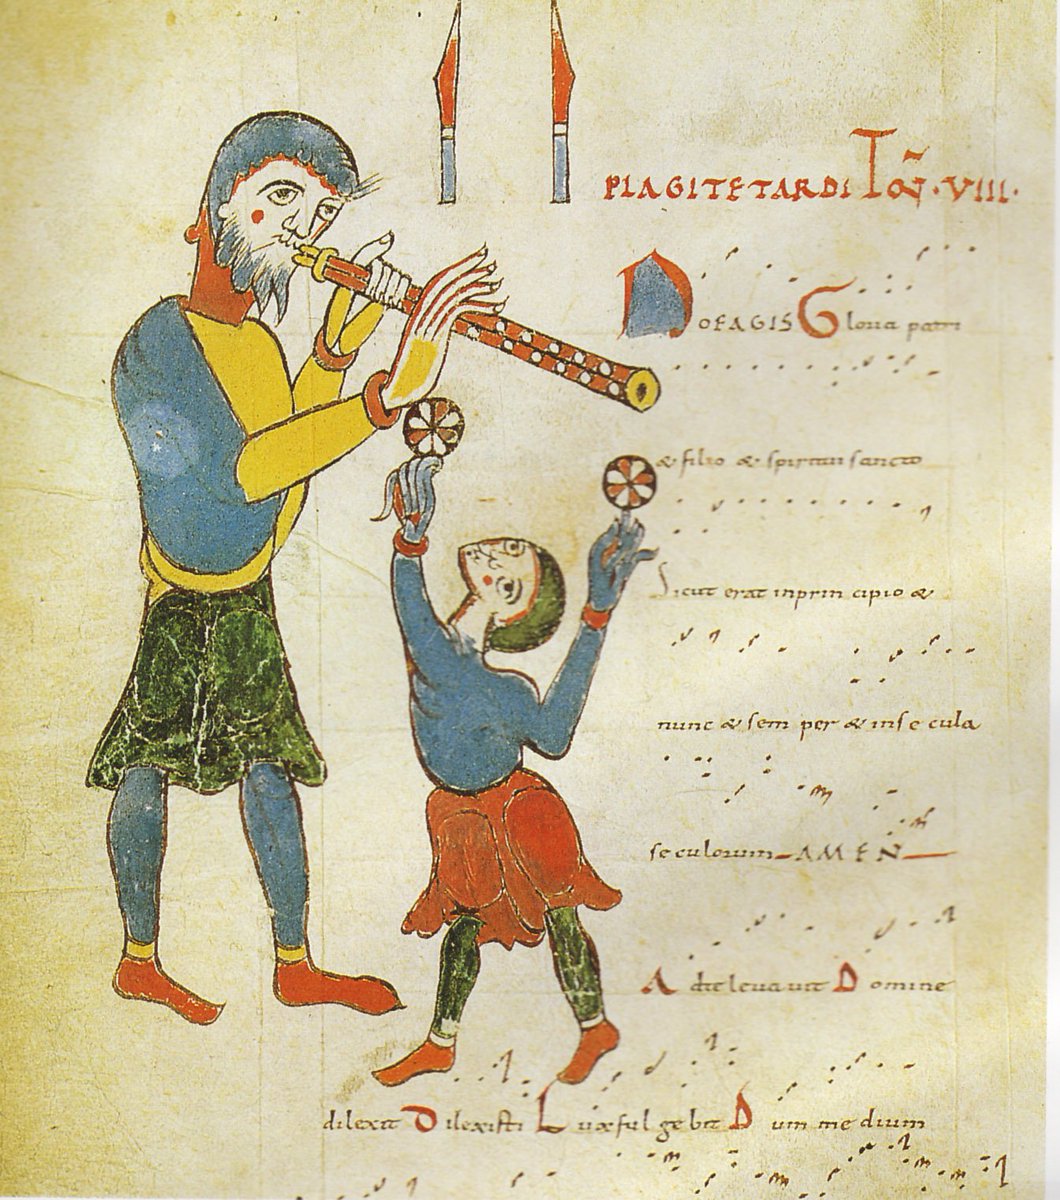 PLAGITETARDI TOÑ·VIII·
NOEAGIS Gloria patri
& filio & spiritui sancto
Sicut erat inprin cipio &
nunc & sem per & inse cula
se culorum AMEN
A dte leva vit Domine
dilexit Dilexisti Lux ful ge bit Dum me dium